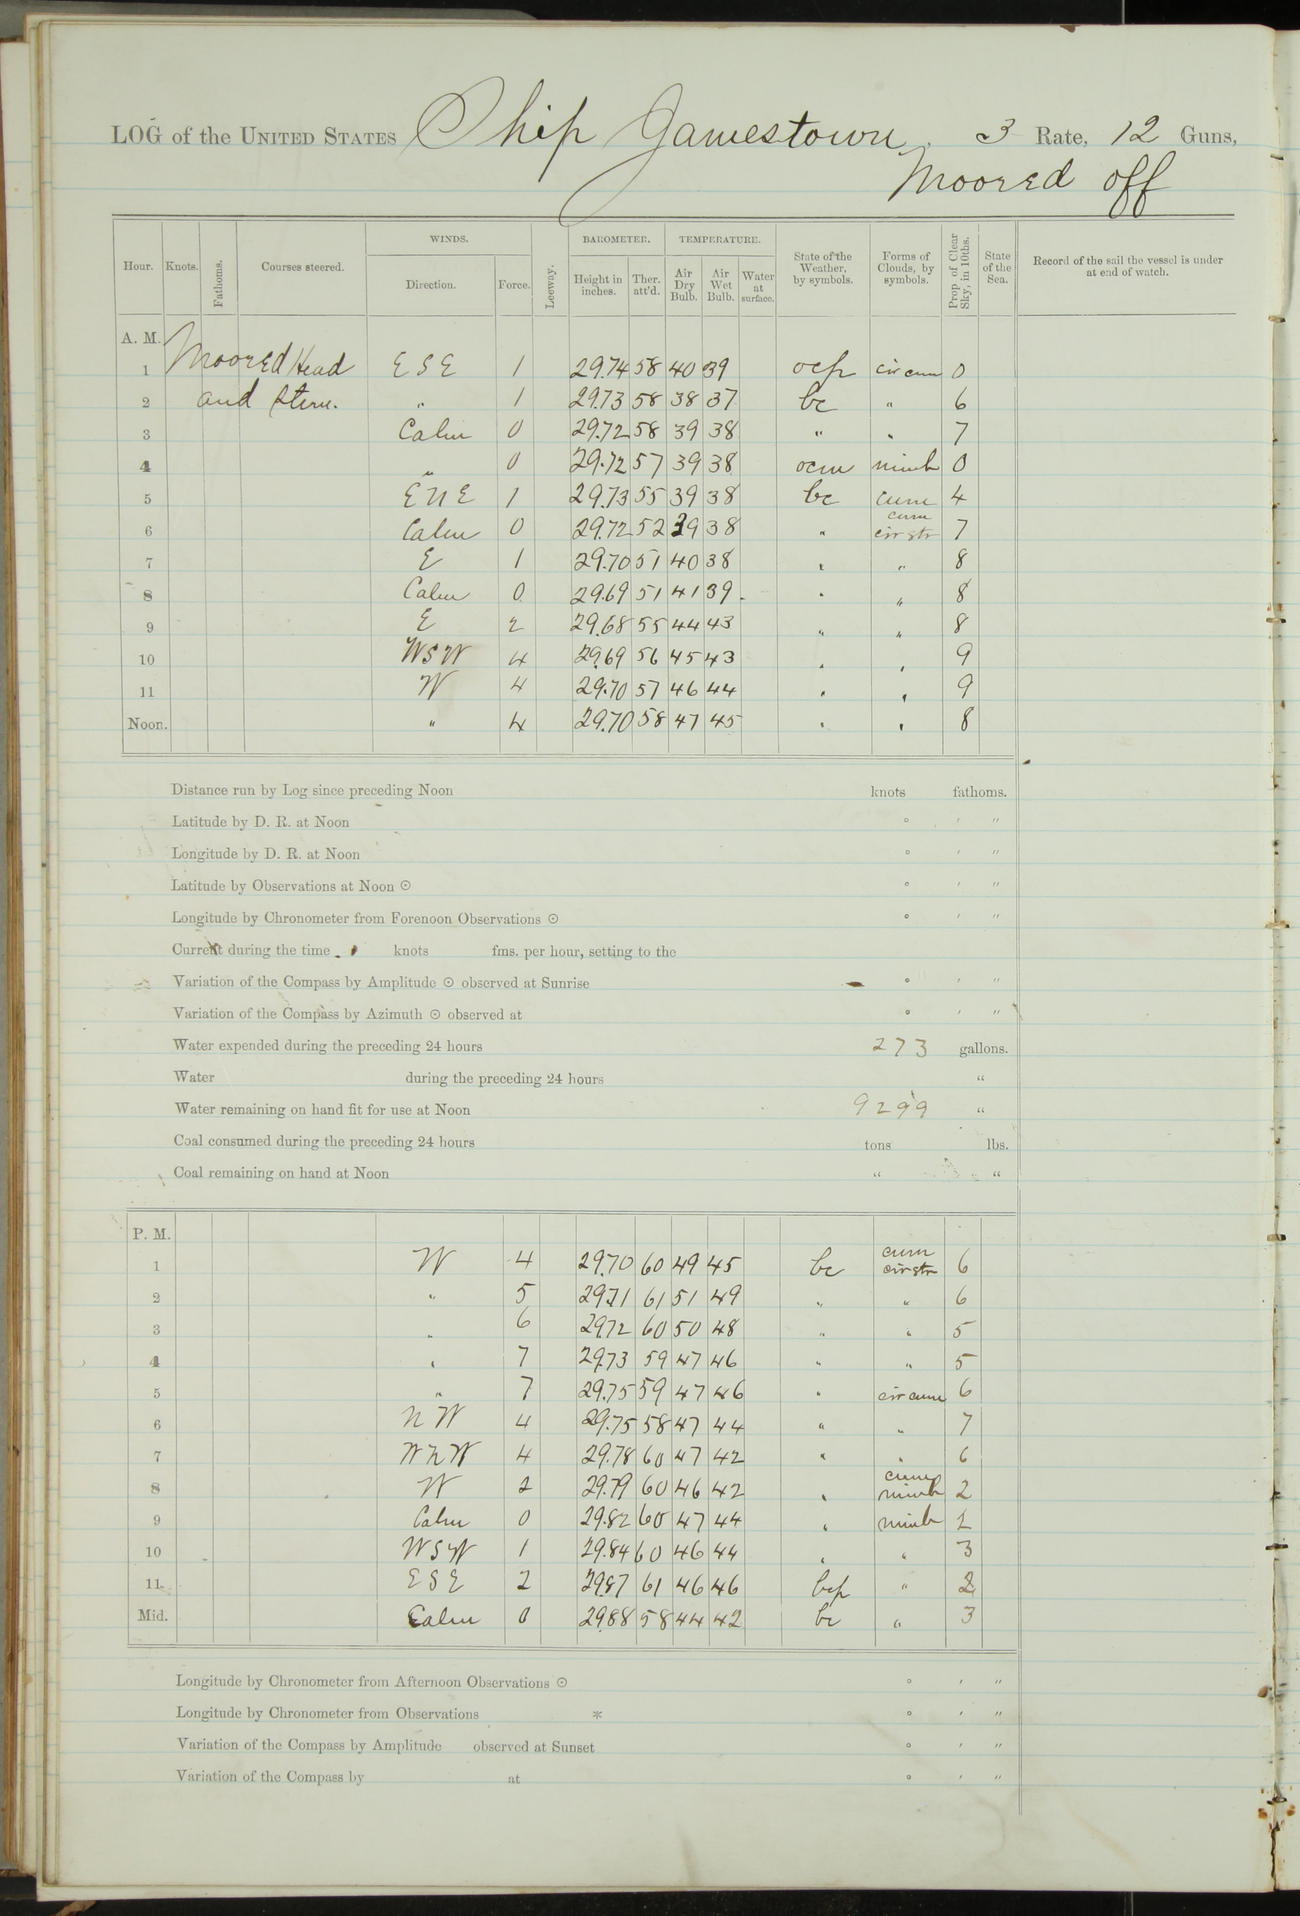 LOG of the UNITED STATES Ship Jamestown, 3 Rate, 12 Guns,
Moored off
Hour. Knots. Fathoms. Courses steered. WINDS. Direction. Force. Leeway. BAROMETER. Height in inches. Ther. att'd. TEMPERATURE. Air Dry Bulb. Air Wet Bulb. Water at surface. State of the Weather, by symbols. Forms of Clouds, by symbols. Prop. of Clear Sky, in 10ths. State of the Sea. Record of the sail the vessel is under at end of watch.
A. M.
1 Moored Head ESE 1 29.74 58 40 39 ocp cir cum 0
2 and Stern. " 1 29.73 58 38 37 bc " 6
3 Calm 0 29.72 58 39 38 " " 7
4 " 0 29.72 57 39 38 ocm nimb 0
5 ENE 1 29.73 55 39 38 bc cum 4
6 Calm 0 29.72 52 39 38 " cum cir str 7
7 E 1 29.70 51 40 38 " " 8
8 Calm 0 29.69 51 41 39 " " 8
9 E 2 29.68 55 44 43 " " 8
10 WSW 4 29.69 56 45 43 " " 9
11 W 4 29.70 57 46 44 " " 9
Noon. " 4 29.70 58 47 45 " " 8
Distance run by Log since preceding Noon knots fathoms.
Latitude by D. R. at Noon ° ′ ″
Longitude by D. R. at Noon ° ′ ″
Latitude by Observations at Noon ☉ ° ′ ″
Longitude by Chronometer from Forenoon Observations ☉ ° ′ ″
Current during the time knots fms. per hour, setting to the
Variation of the Compass by Amplitude ☉ observed at Sunrise ° ′ ″
Variation of the Compass by Azimuth ☉ observed at ° ′ ″
Water expended during the preceding 24 hours 273 gallons.
Water during the preceding 24 hours "
Water remaining on hand fit for use at Noon 9299 "
Coal consumed during the preceding 24 hours tons lbs.
Coal remaining on hand at Noon " "
P. M.
1 W 4 29.70 60 49 45 bc cum cir str 6
2 " 5 29.71 61 51 49 " " 6
3 " 6 29.72 60 50 48 " " 5
4 " 7 29.73 59 47 46 " " 5
5 " 7 29.75 59 47 46 " cir cum 6
6 NW 4 29.75 58 47 44 " " 7
7 WNW 4 29.78 60 47 42 " " 6
8 W 2 29.79 60 46 42 " cum nimb 2
9 Calm 0 29.82 60 47 44 " nimb
10 WSW 1 29.84 60 46 44 " " 3
11 ESE 2 29.87 61 46 46 bcp " 2
Mid. Calm 0 29.88 58 44 42 bc " 3
Longitude by Chronometer from Afternoon Observations ☉ ° ′ ″
Longitude by Chronometer from Observations * ° ′ ″
Variation of the Compass by Amplitude observed at Sunset ° ′ ″
Variation of the Compass by at ° ′ ″